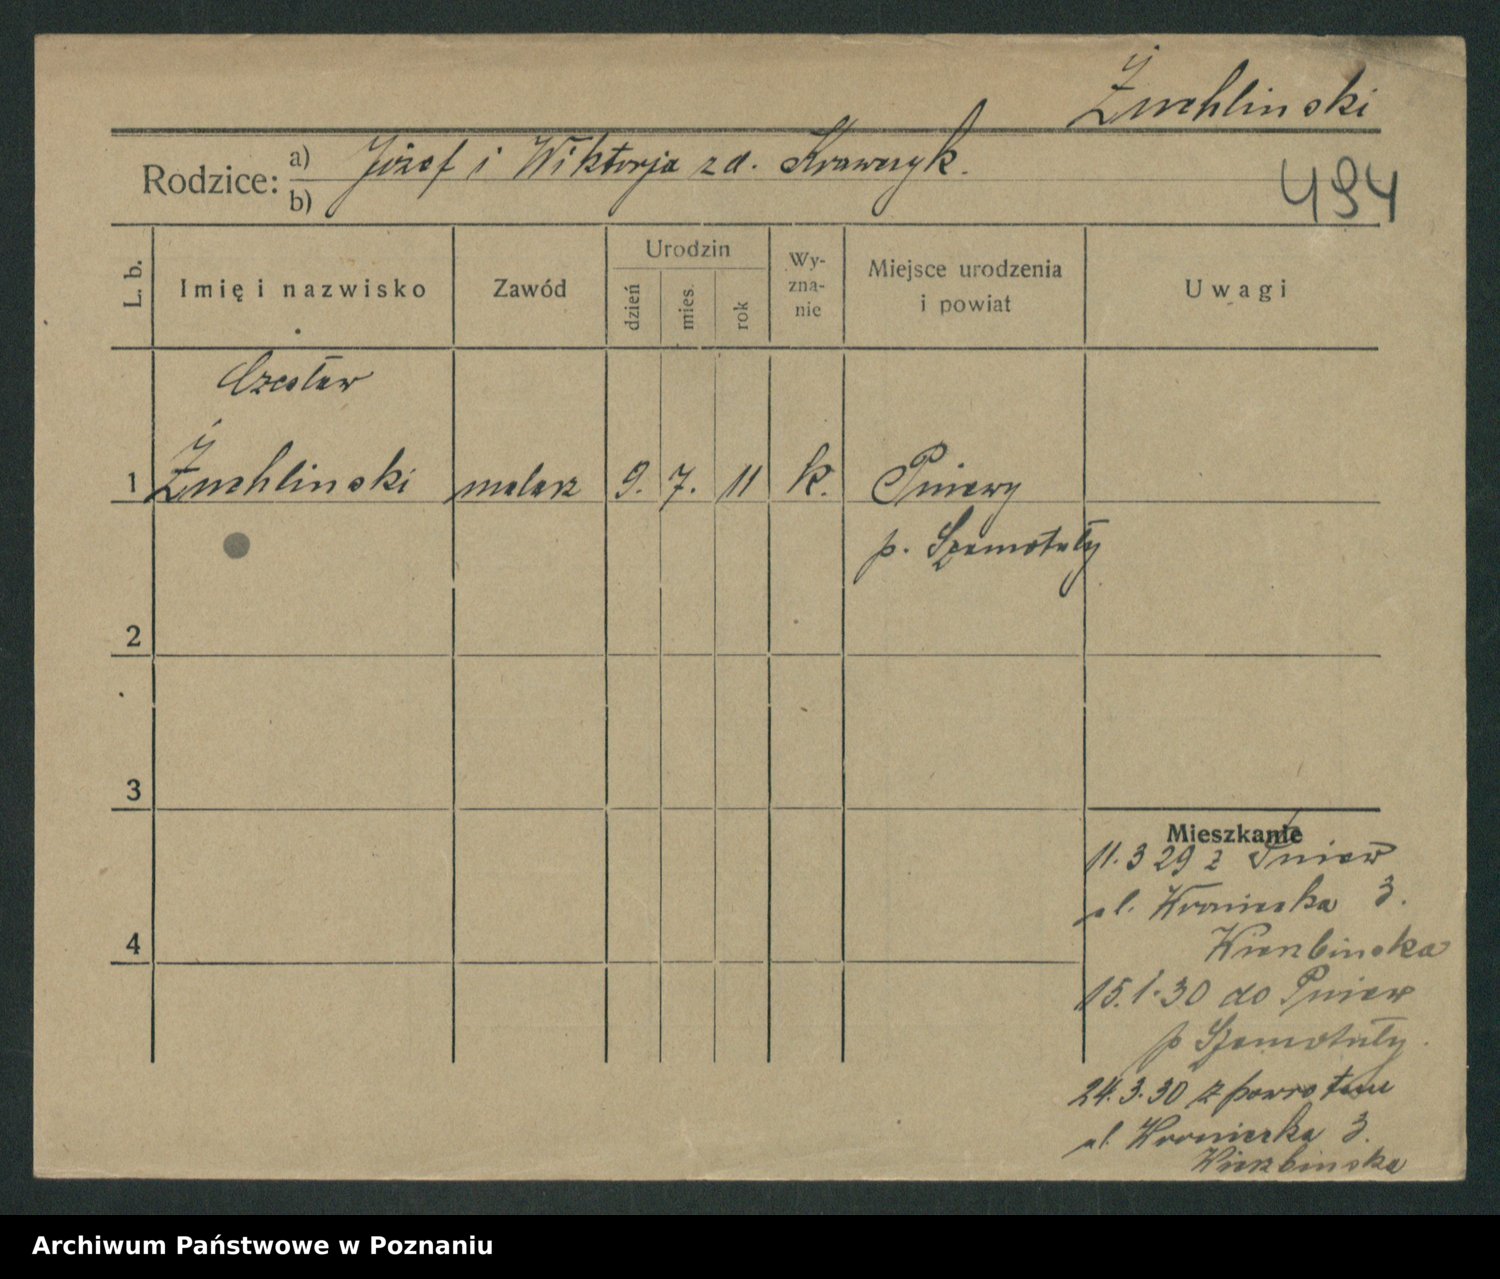 Żuchlinski
Rodzice: a) Józef i Wiktorja z d. Krawczyk.
b)
494
L. b.
Imię i nazwisko
Zawód
Urodzin
dzień
mies.
rok
Wy-
zna-
nie
Miejsce urodzenia
i powiat
Uwagi
Czesław
1 Żuchlinski malarz 9. 7. 11 k. Pniewy
p. Szamotuły
2
3
Mieszkanie
11.3 29 z Pniew
ul. Wroniecka 3.
4
Wierzbinska
15.1.30 do Pniew
p Szamotuły.
24.3.30 z powrotem
ul. Wroniecka 3.
Wierzbinska
Archiwum Państwowe w Poznaniu